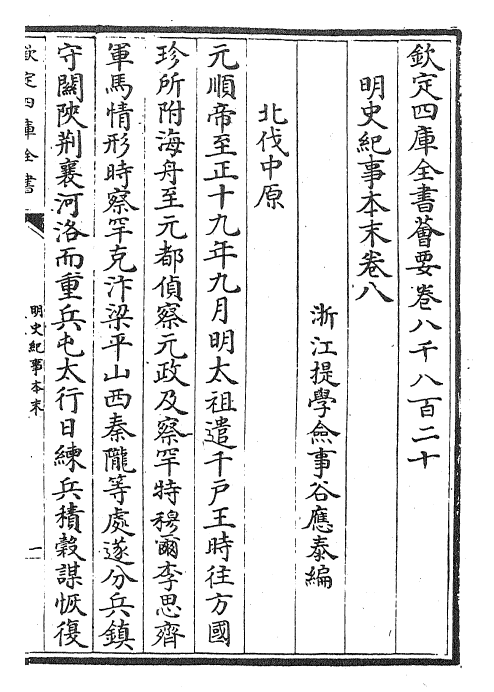 欽定四庫全書薈要卷八千八百二十
明史紀事本末卷八
浙江提學僉事谷應泰編
北伐中原
元順帝至正十九年九月明太祖遣千戶王時往方國
珍所附海舟至元都偵察元政及察罕特穆爾李思齊
軍馬情形時察罕克汴梁平山西秦隴等處遂分兵鎮
守關陝荆襄河洛而重兵屯太行日練兵積榖謀恢復
欽定四庫全書
明史紀事本末
一